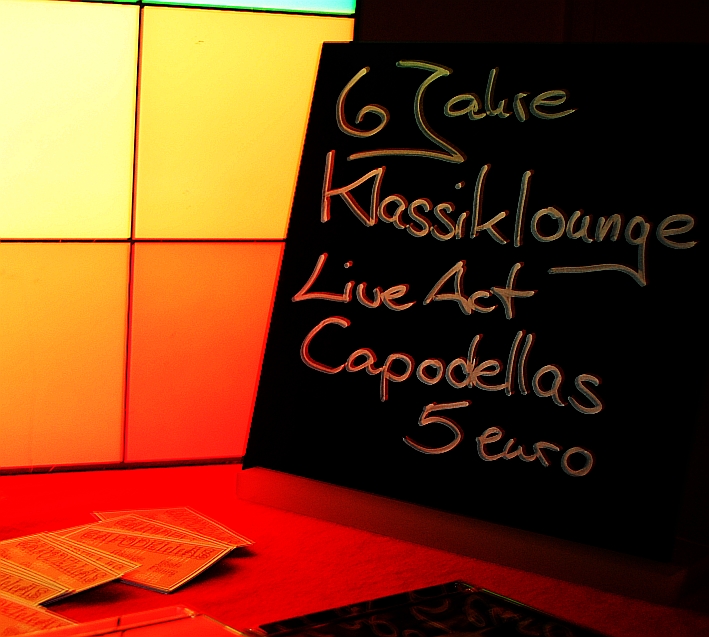 6 Jahre
Klassiklounge
Live Act
Capodellas
5 euro